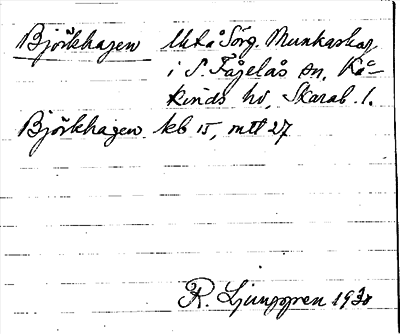 Björkhagen Utå Sörg. Munkaskog
i S. Fågelås sn, Kå-
kinds hd, Skarab. l.
Björkhagen kb 15, mtl 27
R. Ljunggren 1930